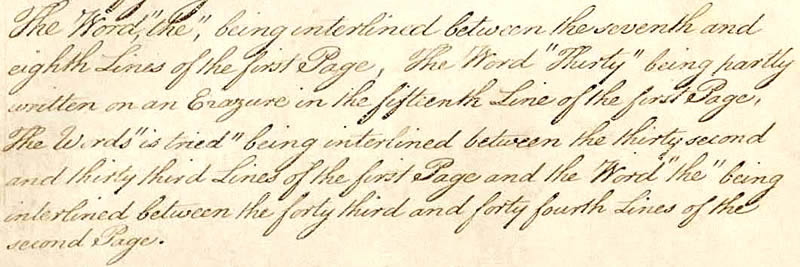 The Word, "the", being interlined between the seventh and
eighth Lines of the first Page, The Word "Thirty" being partly
written on an Erazure in the fifteenth Line of the first Page,
The Words "is tried" being interlined between the thirty second
and thirty third Lines of the first Page and the Word "the" being
interlined between the forty third and forty fourth Lines of the
second Page.